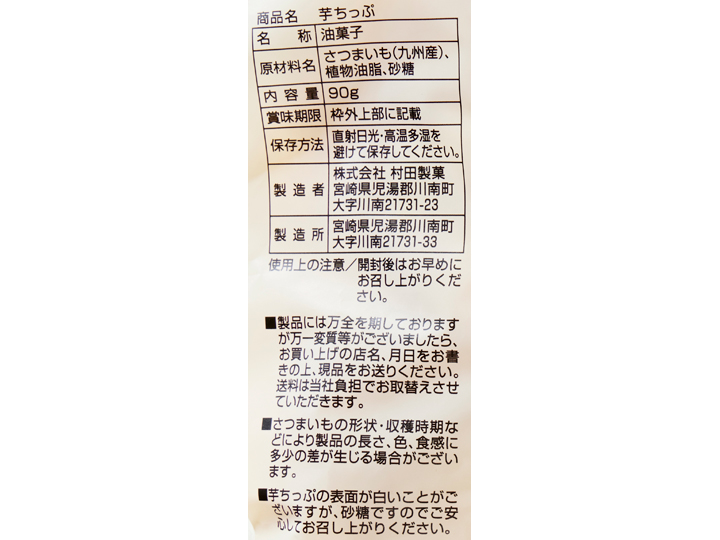 商品名 芋ちっぷ
名称 油菓子
原材料名 さつまいも(九州産)、
植物油脂、砂糖
内容量 90g
賞味期限 枠外上部に記載
保存方法 直射日光・高温多湿を
避けて保存してください。
製造者 株式会社 村田製菓
宮崎県児湯郡川南町
大字川南21731-23
製造所 宮崎県児湯郡川南町
大字川南21731-33
使用上の注意／開封後はお早めに
お召し上がりくだ
さい。
■製品には万全を期しております
が万一変質等がございましたら、
お買い上げの店名、月日をお書
きの上、現品をお送りください。
送料は当社負担でお取替えさせ
ていただきます。
■さつまいもの形状・収穫時期な
どにより製品の長さ、色、食感に
多少の差が生じる場合がござい
ます。
■芋ちっぷの表面が白いことがご
ざいますが、砂糖ですのでご安
心してお召し上がりください。